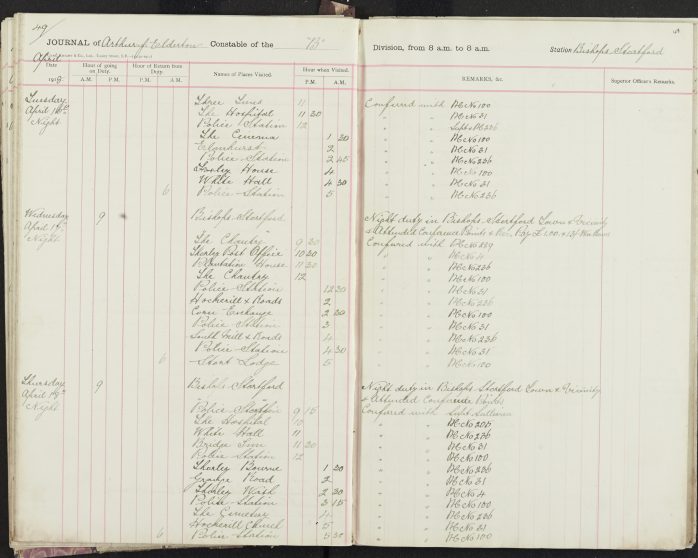 49
JOURNAL of Arthur J. Elderton Constable of the "B" Division, from 8 a.m. to 8 a.m. Station Bishops Stortford
April
Date Hour of going on Duty. Hour of Return from Duty. Names of Places Visited. Hour when Visited. REMARKS, &c. Superior Officer's Remarks.
1918 A.M. P.M. A.M. P.M. P.M. A.M.
Tuesday Three Tuns 11 Conferred with PC No 100
April 16th The Hospital 11 30 " " PC No 31
Night Police Station 12 " " Supt & PC 236
The Cinema 1 30 " " PC No 100
2 " " PC No 31
Police Station 2 45 " " PC No 236
House 4 " " PC No 100
White Hall 4 30 " " PC No 31
6 Police Station 5 " " PC No 236
Wednesday 9 Bishops Stortford Night duty in Bishops Stortford Town & Vicinity
April 17th & Attended Conference Points
Night The Chantry 9 30 Conferred with PC No 289
Post Office 10 30 " " PC No 4
Plantation House 11 30 " " PC No 236
The Chantry 12 " " PC No 100
Police Station 12 30 " " PC No 31
Hockerill X Roads 2 " " PC No 236
Corn Exchange 2 30 " " PC No 100
Police Station 3 " " PC No 31
South Mill X Roads 4 " " PC No 236
Police Station 4 30 " " PC No 31
6 Stort Lodge 5 " " PC No 100
Thursday 9 Bishops Stortford Night duty in Bishops Stortford Town & Vicinity
April 18th & Attended Conference Points
Night Police Station 9 15 Conferred with Supt Sullivan
The Hospital 10 " " PC No 205
White Hall 11 " " PC No 236
Bridge Inn 11 30 " " PC No 31
Police Station 12 " " PC No 100
Bourne 1 30 " " PC No 236
Grange Road 2 " " PC No 31
2 30 " " PC No 4
Police Station 3 15 " " PC No 100
The Cemetery 4 " " PC No 236
Hockerill Church 5 " " PC No 31
6 Police Station 5 30 " " PC No 100